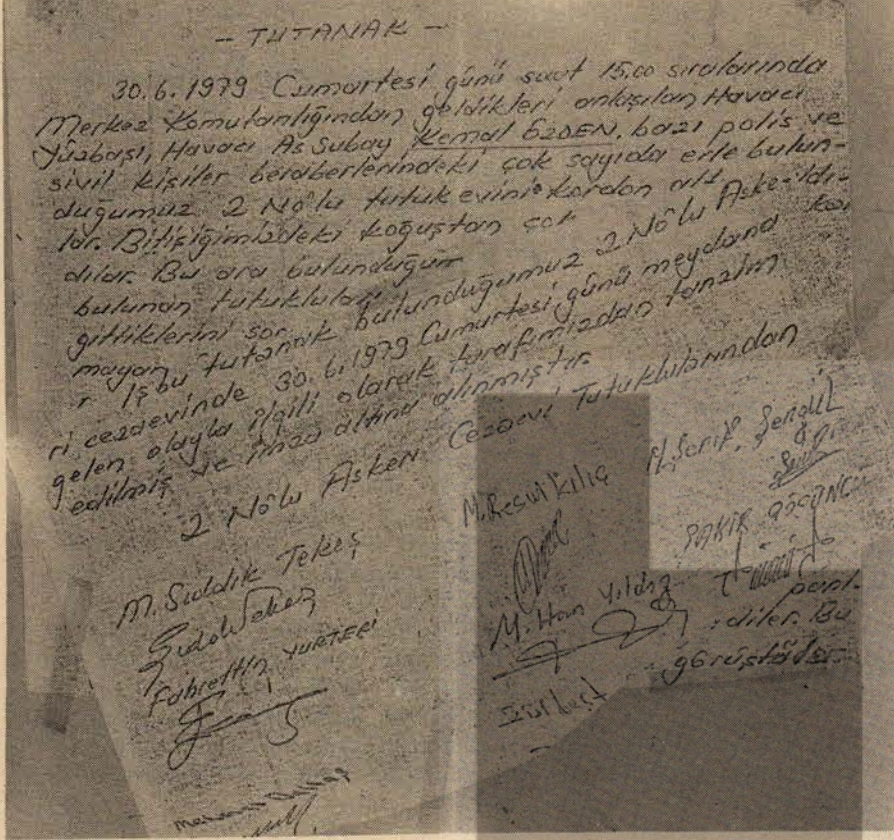 - TUTANAK -
30.6.1979 Cumartesi günü saat 15.00 sıralarında
Merkez Komutanlığından geldikleri anlaşılan Havacı
Yüzbaşı, Havacı As Subay Kemal ÖZDEN, bazı polis ve
sivil kişiler beraberlerindeki çok sayıda erle bulun-
duğumuz 2 Nô'lu tutukevini kordon alt
lar. Bitişiğimizdeki koğuştan çok
dılar. Bu ara bulunduğum
bulunan tutukluları
gittiklerini sor
mayan
İşbu tutanak bulunduğumuz 2 Nô'lu Aske-
ri cezaevinde 30.6.1979 Cumartesi günü meydana
gelen olayla ilgili olarak tarafımızdan tanzim
edilmiş ve imza altına alınmıştır.
2 Nô'lu Askeri Cezaevi Tutuklularından
M. Resul Kılıç
M. Şerif Şengül
M. Sıddık Tekeş
M. Han Yıldız
Fahrettin YURTERİ
diler. Bu
görüştüler.